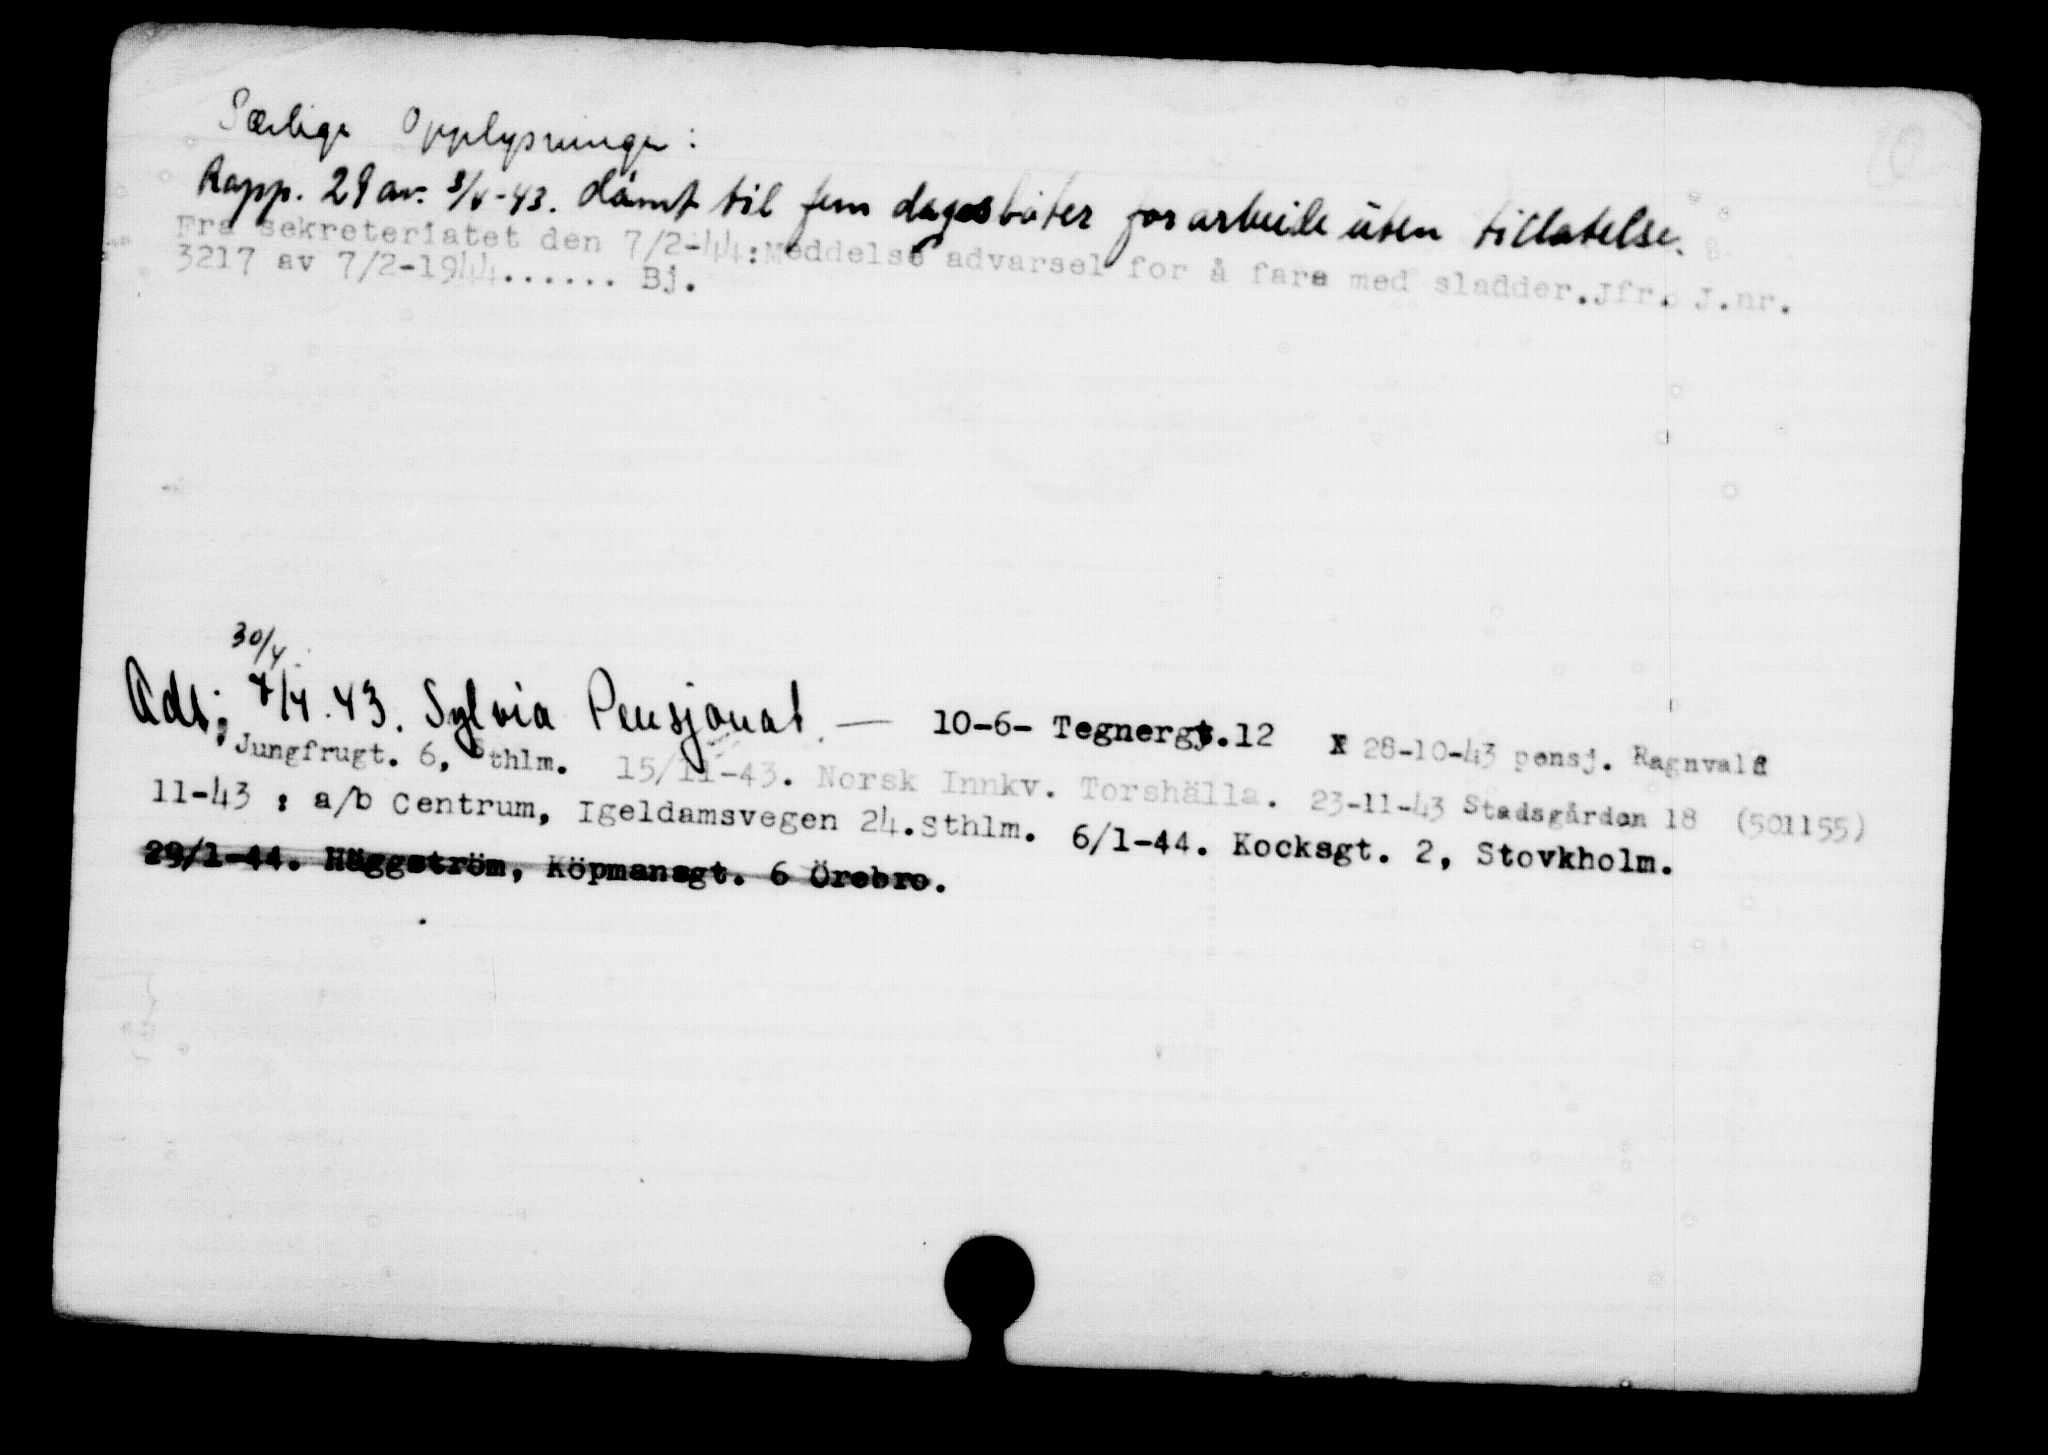 Særlige Opplysninger:
Rapp. 29 av. 3/5-43. dømt til fem dagsbøter for arbeide uten tillatelse.
Fra sekreteriatet den 7/2-44:Meddelse advarsel for å fare med sladder.Jfr. J.nr.
3217 av 7/2-1944...... Bj.
30/4
Adr: 7/4.43. Sylvia Pensjonat. — 10-6- Tegnergt.12 X 28-10-43 pensj. Ragnvald
Jungfrugt. 6, Sthlm. 15/11-43. Norsk Innkv. Torshälla. 23-11-43 Stadsgården 18 (501155)
11-43 : a/b Centrum, Igeldamsvegen 24.Sthlm. 6/1-44. Kocksgt. 2, Stovkholm.
29/1-44. Häggström, Köpmansgt. 6 Örebro.